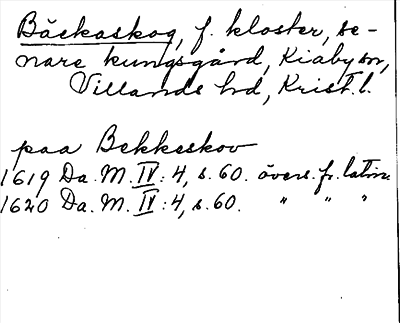 Bäckaskog, f. kloster, se-
nare kungsgård, Kiaby sn,
Villands hd, Krist. l.
paa Bekkeskov
1619 Da. M. IV: 4, s. 60. övers. fr. latin.
1620 Da. M. IV: 4, s. 60. " " "